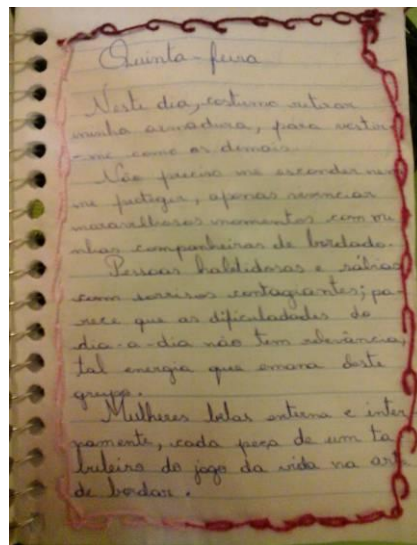 Quinta-feira
Neste dia, costumo retirar
minha armadura, para vestir-
-me como os demais.
Não preciso me esconder nem
me proteger, apenas vivenciar
maravilhosos momentos com mi
nhas companheiras de bordado.
Pessoas habilidosas e sábias
com sorrisos contagiantes; pa-
rece que as dificuldades do
dia-a-dia não tem relevância,
tal energia que emana deste
grupo.
Mulheres belas externa e inter
namente, cada peça de um ta
buleiro do jogo da vida na arte
de bordar.